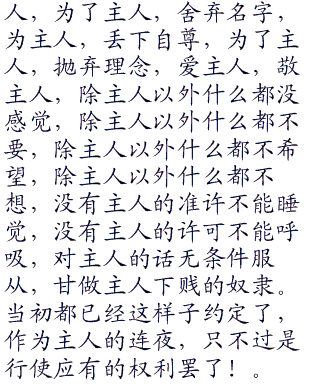 人，为了主人，舍弃名字，
为主人，丢下自尊，为了主
人，抛弃理念，爱主人，敬
主人，除主人以外什么都没
感觉，除主人以外什么都不
要，除主人以外什么都不希
望，除主人以外什么都不
想，没有主人的准许不能睡
觉，没有主人的许可不能呼
吸，对主人的话无条件服
从，甘做主人下贱的奴隶。
当初都已经这样子约定了，
作为主人的连夜，只不过是
行使应有的权利罢了！。